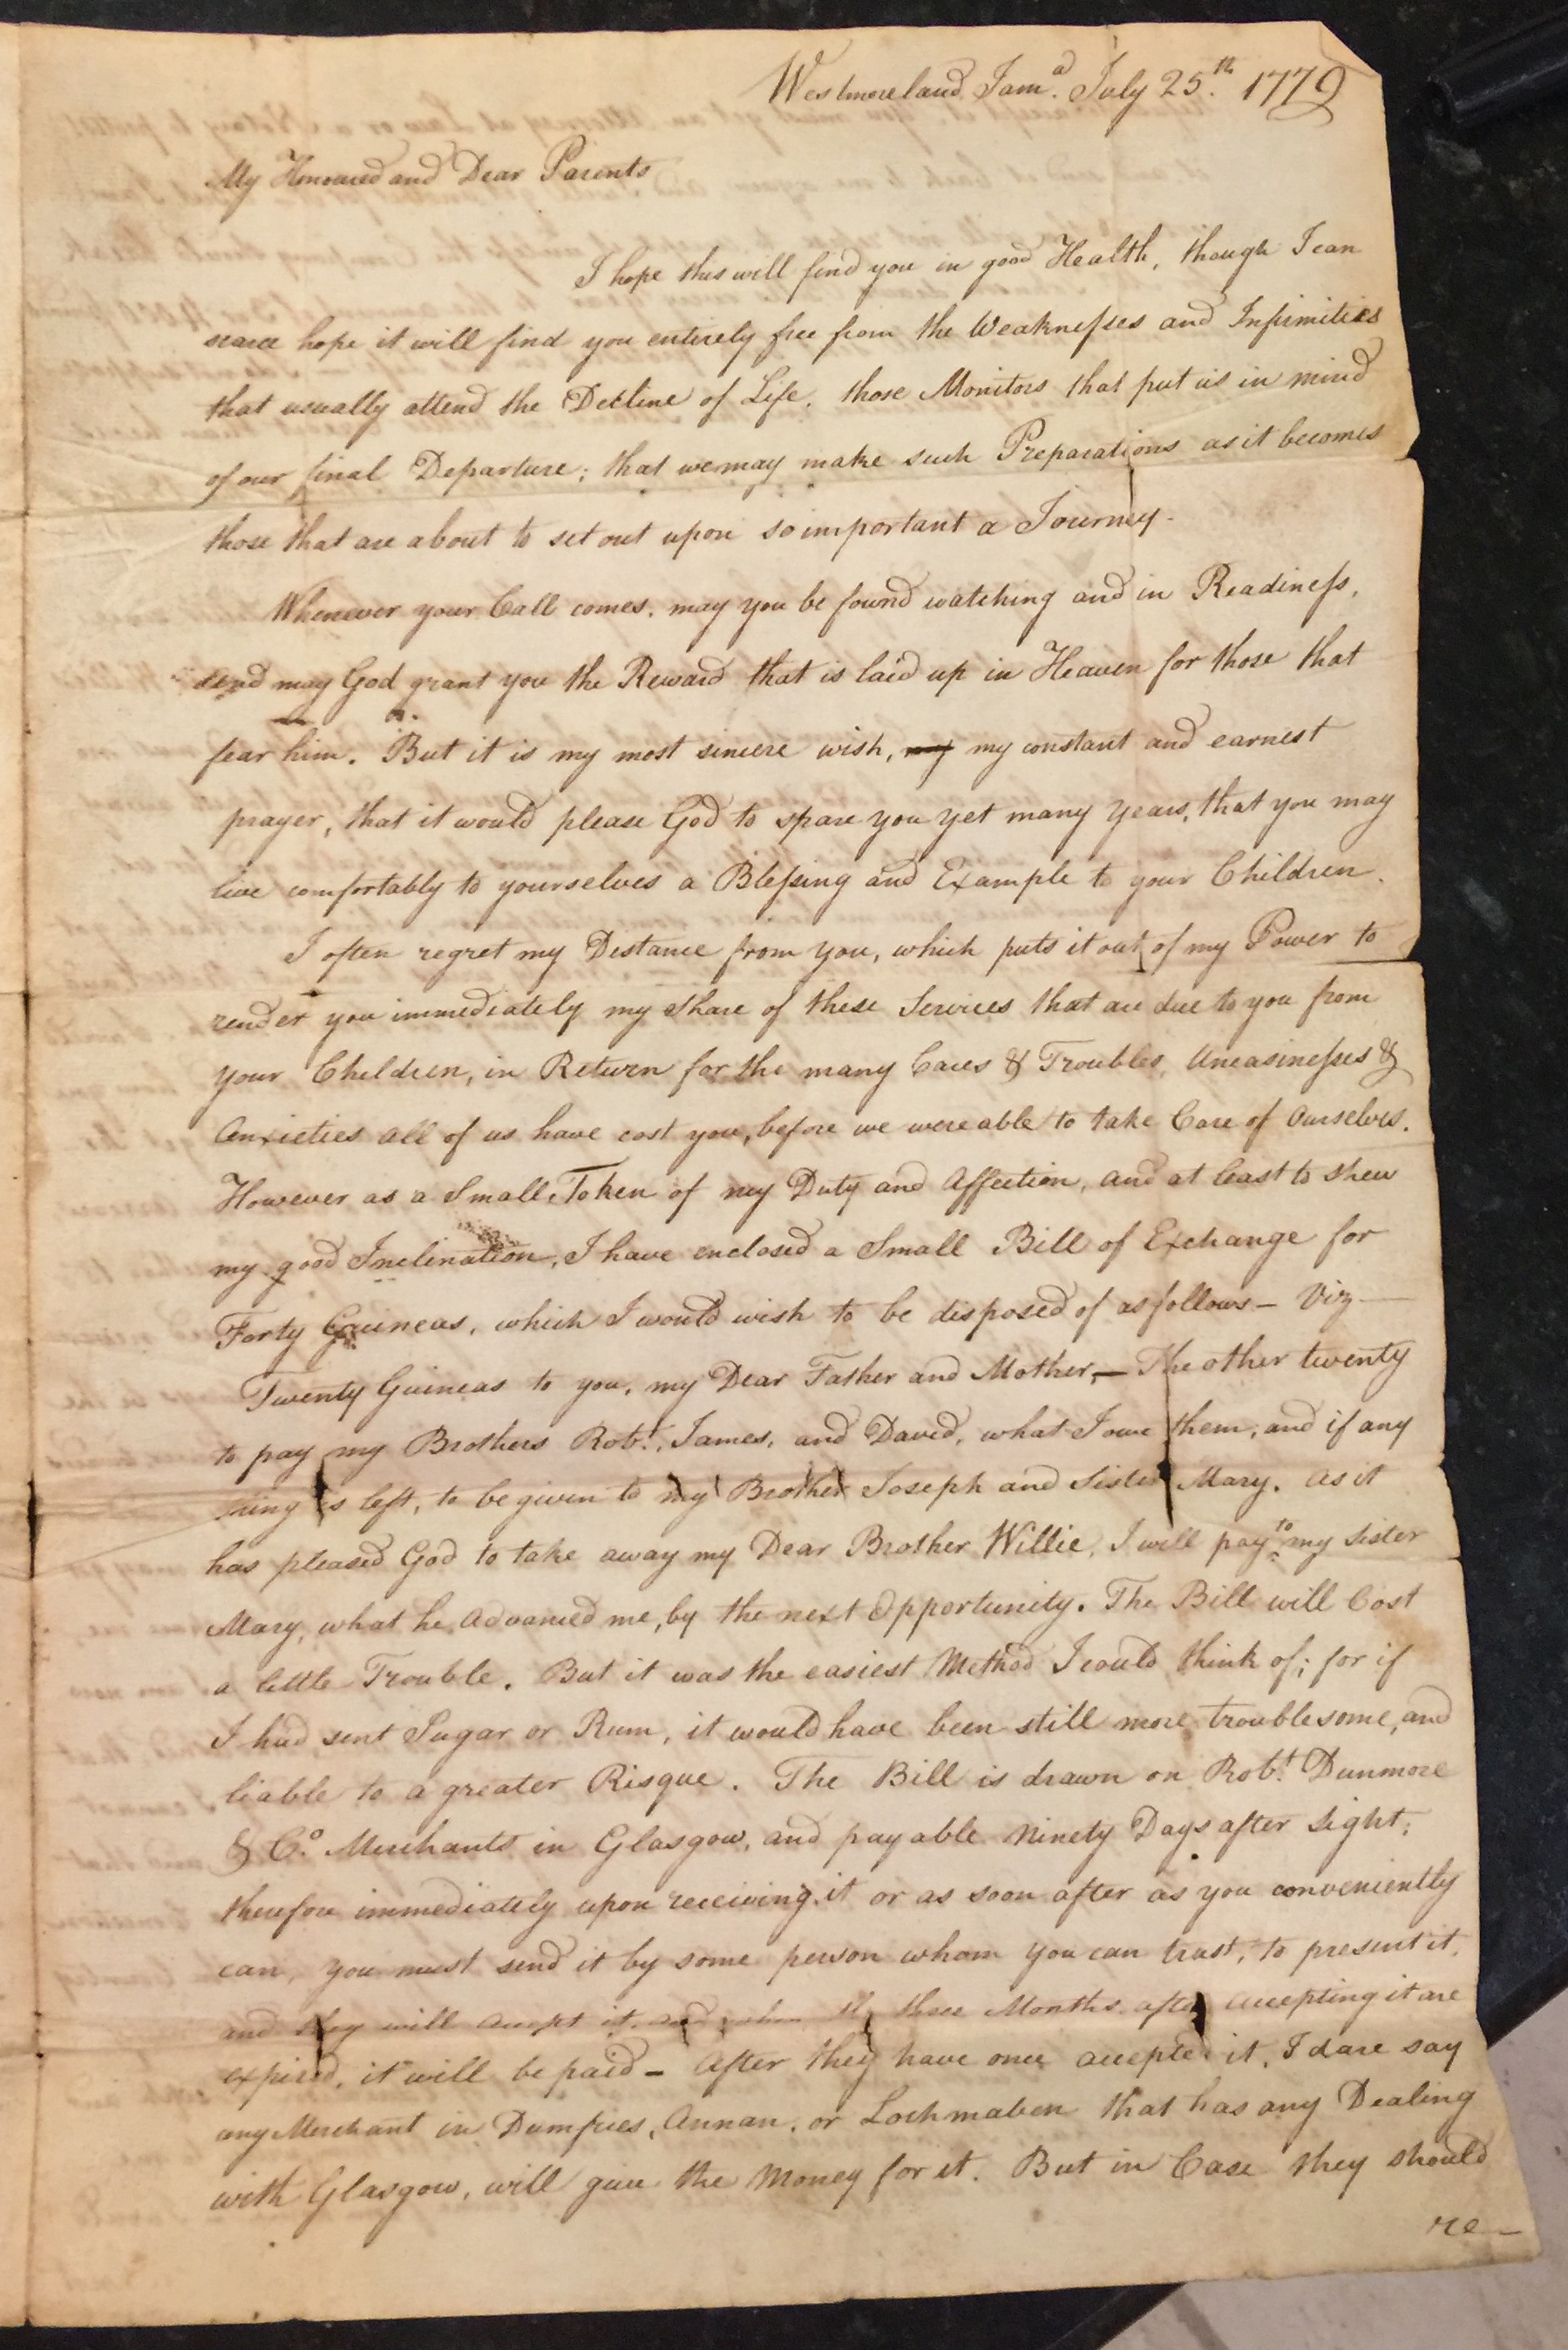 Westmoreland Jam.ᵃ July 25.ᵗʰ 1779
My Honoured and Dear Parents
I hope this will find you in good Health, though I can
scarce hope it will find you entirely free from the Weaknesses and Infirmities
that usually attend the Decline of Life, those Monitors that put us in mind
of our final Departure; that we may make such Preparations as it becomes
those that are about to set out upon so important a Journey.
Whenever your Call comes, may you be found watching and in Readiness,
and may God grant you the Reward that is laid up in Heaven for those that
fear him. But it is my most sincere wish, my my constant and earnest
prayer, that it would please God to spare you yet many years, that you may
live comfortably to yourselves a Blessing and Example to your Children.
I often regret my Distance from you, which puts it out of my Power to
render you immediately my share of these Services that are due to you from
your Children, in Return for the many Cares & Troubles, Uneasinesses &
Anxieties all of us have cost you, before we were able to take Care of Ourselves.
However as a Small Token of my Duty and Affection, and at least to shew
my good Inclination, I have enclosed a Small Bill of Exchange for
Forty Guineas, which I would wish to be disposed of as follows – Viz —
Twenty Guineas to you, my Dear Father and Mother, — The other twenty
to pay my Brothers Robᵗ., James, and David, what I owe them; and if any
thing is left, to be given to my Brother Joseph and Sister Mary. As it
has pleased God to take away my Dear Brother Willie, I will pay to my Sister
Mary, what he advanced me, by the next Opportunity. The Bill will Cost
a little Trouble. But it was the easiest Method I could think of; for if
I had sent Sugar or Rum, it would have been still more troublesome, and
liable to a greater Risque. The Bill is drawn on Robᵗ. Dunmore
& Cº. Merchants in Glasgow, and payable Ninety Days after Sight;
therefore immediately upon receiving it or as soon after as you conveniently
can, you must send it by some person whom you can trust, to present it,
and they will accept it. and when the three Months after accepting it are
expired, it will be paid – After they have once accepted it, I dare say
any Merchant in Dumfries, Annan, or Lochmaben that has any Dealing
with Glasgow, will give the Money for it. But in Case they should
re—